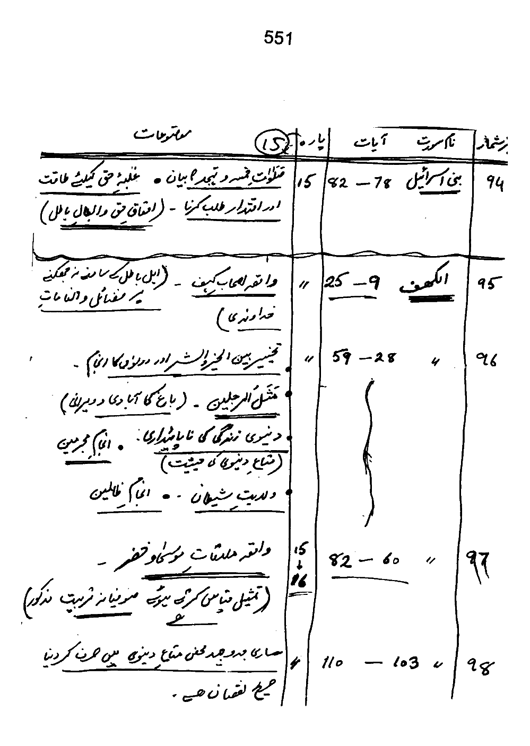 551
نمبر شمار نام سورت آیات پارہ (15) موضوعات
94 بنی اسرائیل 78 – 82 15 صلوٰت خمسہ و تہجد کا بیان • غلبۂ حق کیلئے طاقت
اور اقتدار طلب کرنا - (احقاق حق و ابطال باطل)
95 الکہف 9 – 25 " واقعہ اصحاب کہف - (اہل باطل کے سامنے نہ جھکنے
پر فضائل و انعامات
خداوندی)
96 " 28 – 59 " تخییر بین الخیر والشر اور دونوں کا انجام -
• مثل الرجلین - (باغ کی آبادی و ویرانی)
• دنیوی زندگی کی ناپائیداری - • انجام مجرمین
(متاع دنیوی کی حیثیت)
• ولدیت شیطان - • انجام ظالمین
97 " 60 – 82 15 ↓ 16 واقعہ ملاقات موسیٰ و خضر -
(تمثیل صوفیانہ تربیت مذکور)
98 " 103 – 110 " ساری جدوجہد محض متاع دنیوی میں صرف کر دینا
نقصان ہے -